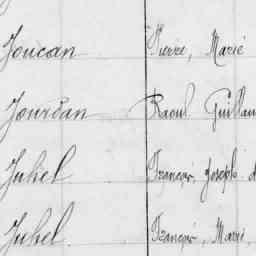 Joucan Pierre, Marie
Jourdan Raoul Guillau
Juhel François, Joseph d
Juhel François, Marie,